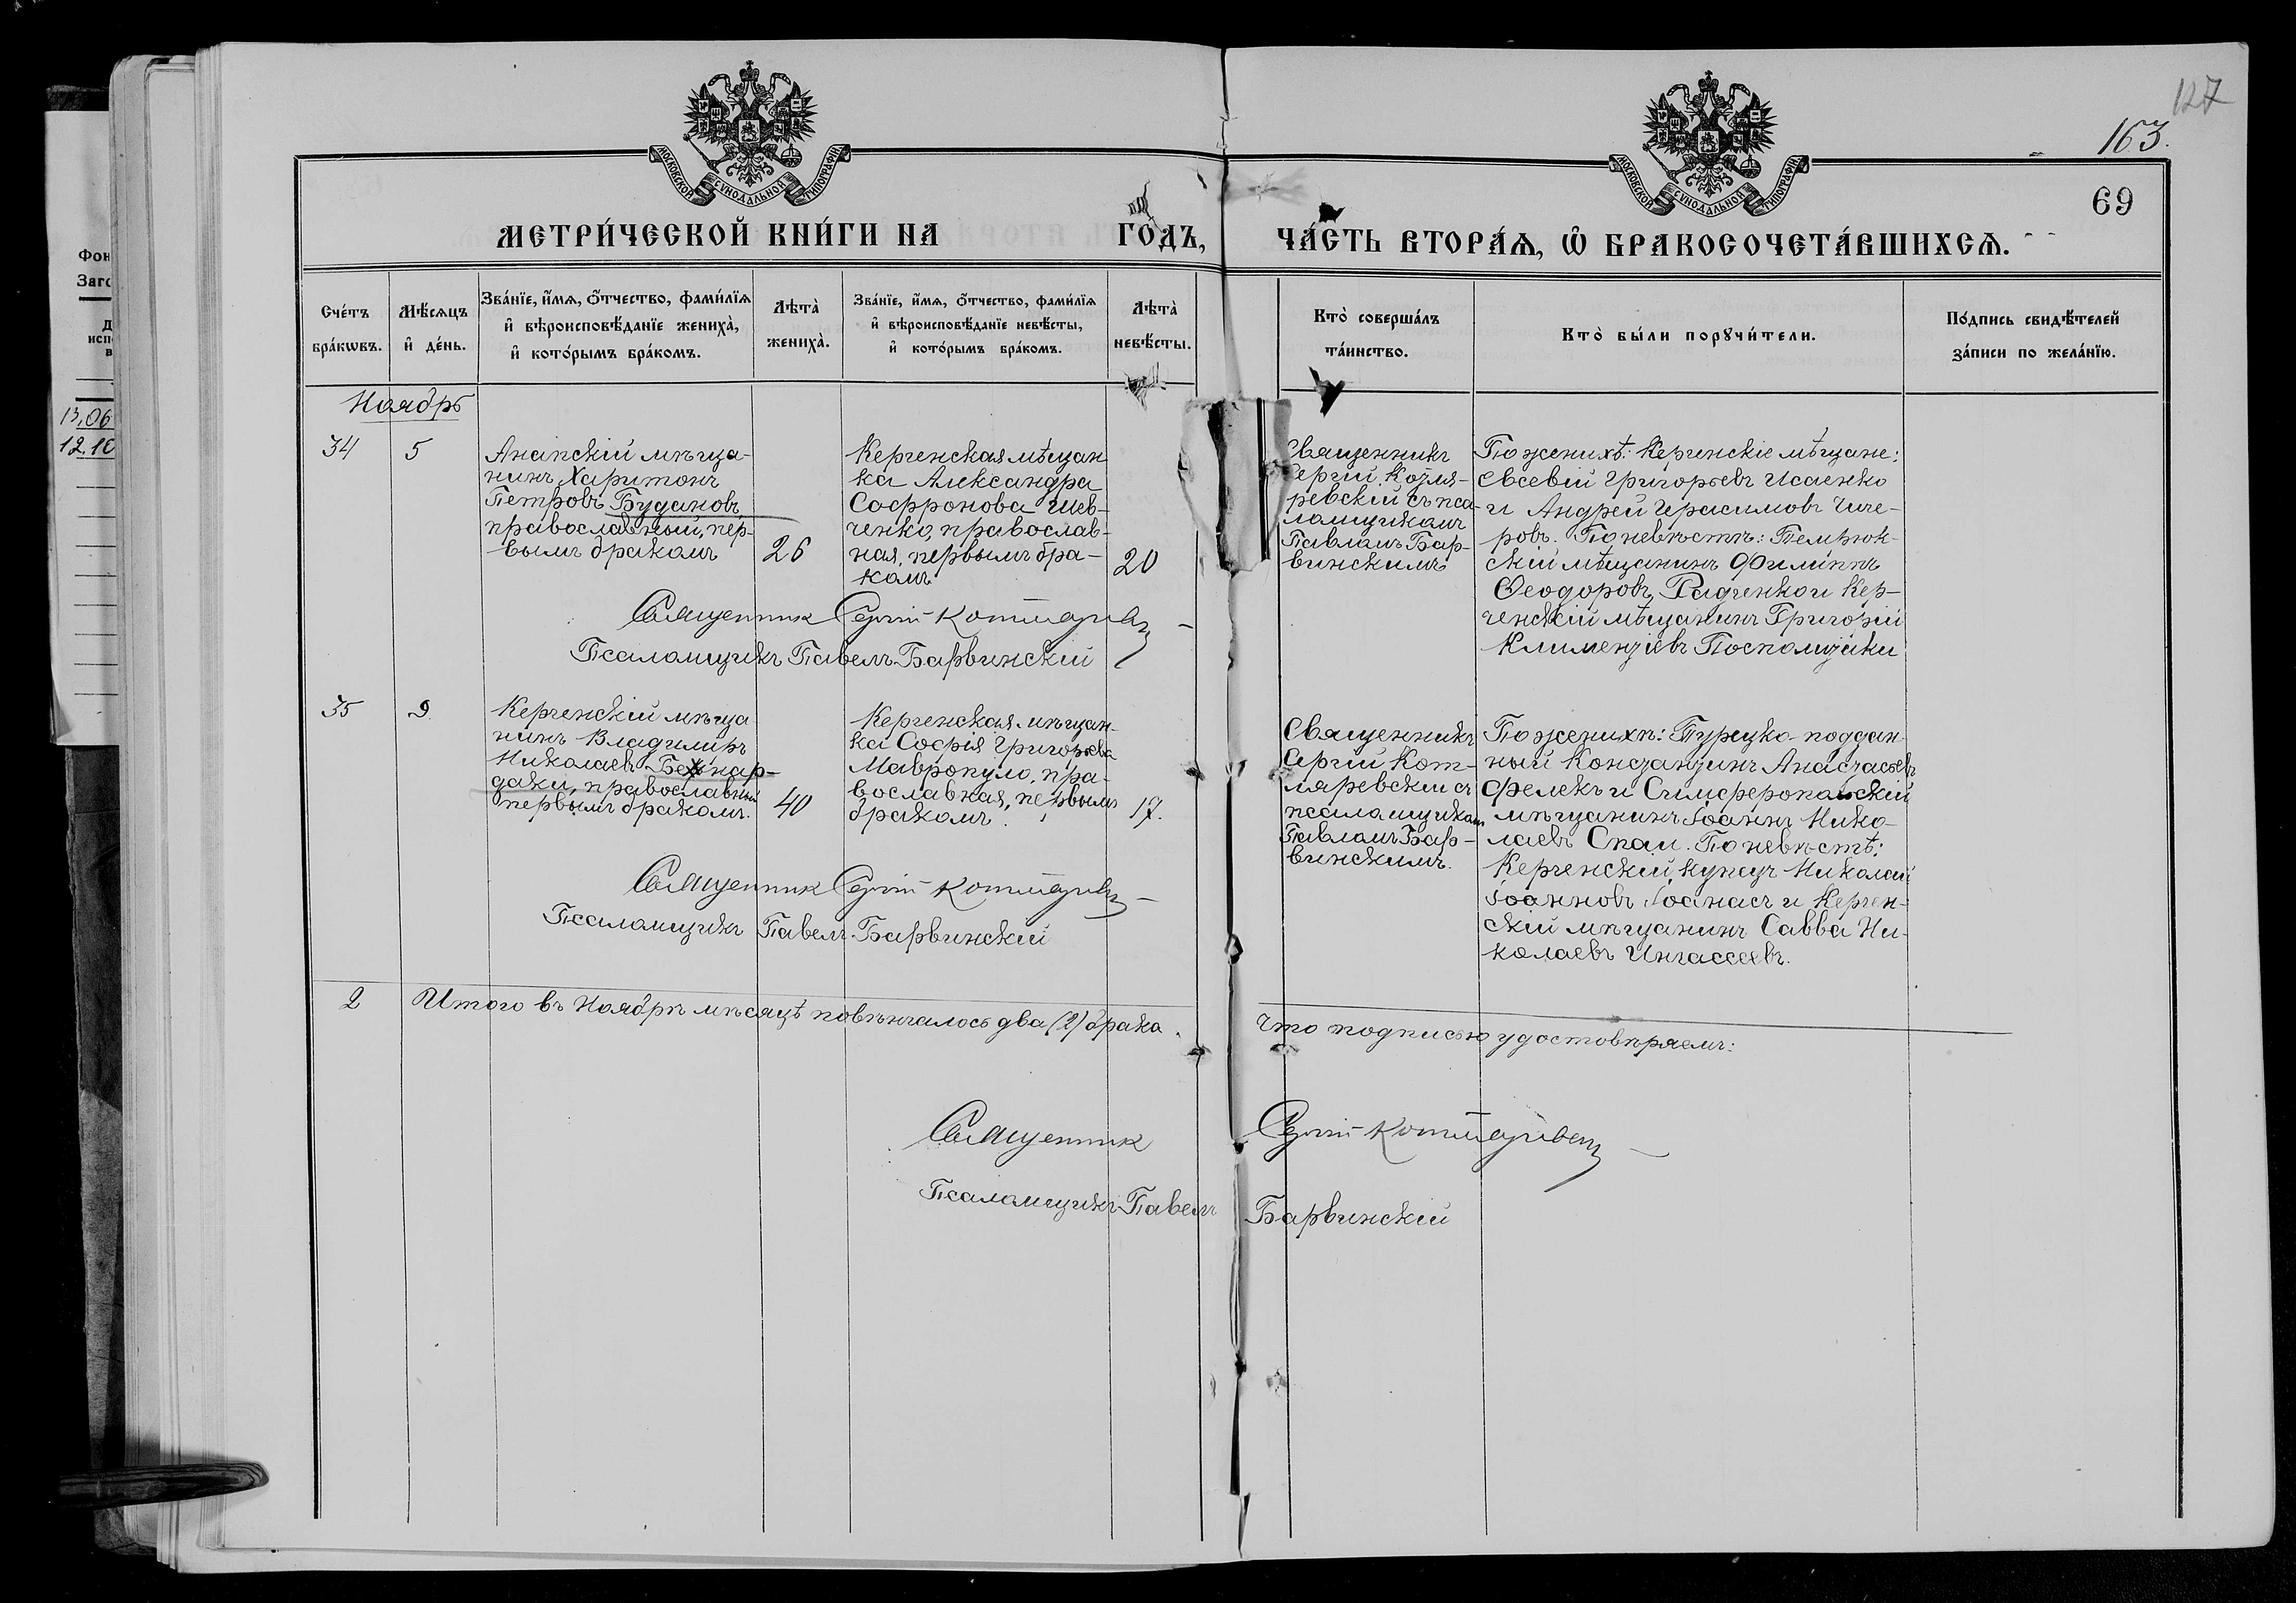 127
163.
69
МОСКОВСКОЙ СУНОДАЛЬНОЙ ТИПОГРАФІИ
МОСКОВСКОЙ СУНОДАЛЬНОЙ ТИПОГРАФІИ
МЕТРИ́ЧЕСКОЙ КНИ́ГИ НА ГО́ДЪ,
ЧА́СТЬ ВТОРА́Ѧ, Ѽ БРАКОСОЧЕТА́ВШИХСѦ.
Сче́тъ
бра́кѡвъ.
Мѣ́сѧцъ
и҆ де́нь.
Зва́нїе, и҆́мѧ, ѻ҆́тчество, фами́лїѧ
и҆ вѣроисповѣ́данїе жениха̀,
и҆ кото́рымъ бра́комъ.
Лѣта̀
жениха̀.
Зва́нїе, и҆́мѧ, ѻ҆́тчество, фами́лїѧ
и҆ вѣроисповѣ́данїе невѣ́сты,
и҆ кото́рымъ бра́комъ.
Лѣта̀
невѣ́сты.
Кто̀ соверша́лъ
та́инство.
Кто̀ бы́ли порꙋчи́тели.
По́дпись свидѣ́телей
за́писи по жела́нїю.
Фон
Заго
13,06
Ноябрь
34
5
Анапскій мѣща-
нинъ Харитонъ
Петровъ Будановъ,
православный, пер-
вымъ бракомъ
26
Керченская мѣщан
ка Александра
Софронова Шев-
ченко, православ-
ная, первымъ бра-
комъ
20
Священникъ
Сергій
ревскій съ пса-
ломщикомъ
Павломъ Бар-
винскимъ
По женихѣ: Керченскіе мѣщане:
Евсевій Григорьевъ Исаенко
и Андрей Герасимовъ Чиче-
ровъ. По невѣстѣ: Темрюк-
скій мѣщанинъ Филиппъ
Ѳеодоровъ Радченко и Кер-
ченскій мѣщанинъ Григорій
Климентіевъ
Священникъ Сергій Котляревск
Псаломщикъ Павелъ Барвинскій
35
9
Керченскій мѣща
нинъ Владимиръ
Николаевъ
даки, православный
первымъ бракомъ.
40
Керченская мѣщан-
ка Софія Григорьева
Мавропуло, пра-
вославная, первымъ
бракомъ.
17.
Священникъ
Сергій Кот-
ляревскій съ
псаломщикомъ
Павломъ Бар-
винскимъ.
По женихѣ: Турецко-поддан-
ный Константинъ Анастасьевъ
Фелекъ и Симферопольскій
мѣщанинъ Іоаннъ Нико-
лаевъ Спаи. По невѣстѣ:
Керченскій купецъ Николай
Іоанновъ Іоанасъ и Керчен-
скій мѣщанинъ Савва Ни-
колаевъ
Священникъ Сергій Котляревск
Псаломщикъ Павелъ Барвинскій
2
Итого въ Ноябрѣ мѣсяцѣ повѣнчалось два (2) брака.
Что подписью удостовѣряемъ:
Священникъ Сергій Котляревск
Псаломщикъ Павелъ Барвинскій